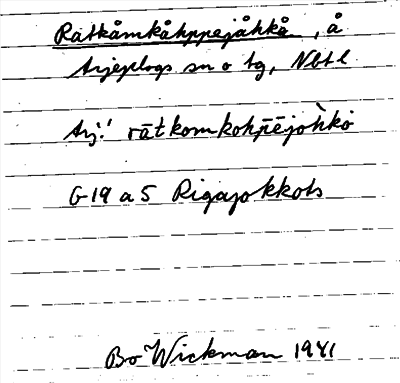 Ratkåmkåhppejåhkå, å
Arjeplogs sn o tg, Nbtl
Arj.! rātkomkohpējohkō
G 19 a 5 Rigajokkots
Bo Wickman 1941